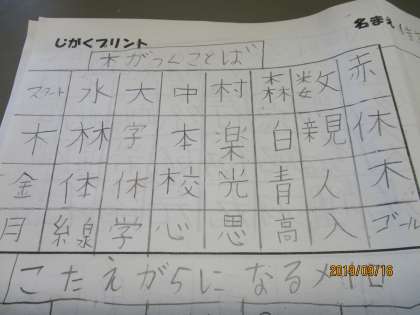 じがくプリント
名まえ
木がつくことば
スタート 水 大 中 村 森 数 文 赤
木 林 字 本 楽 白 親 休
金 体 休 校 光 青 人 木
月 線 学 心 思 高 入 ゴール
こたえがらになるメイロ
2019/09/16